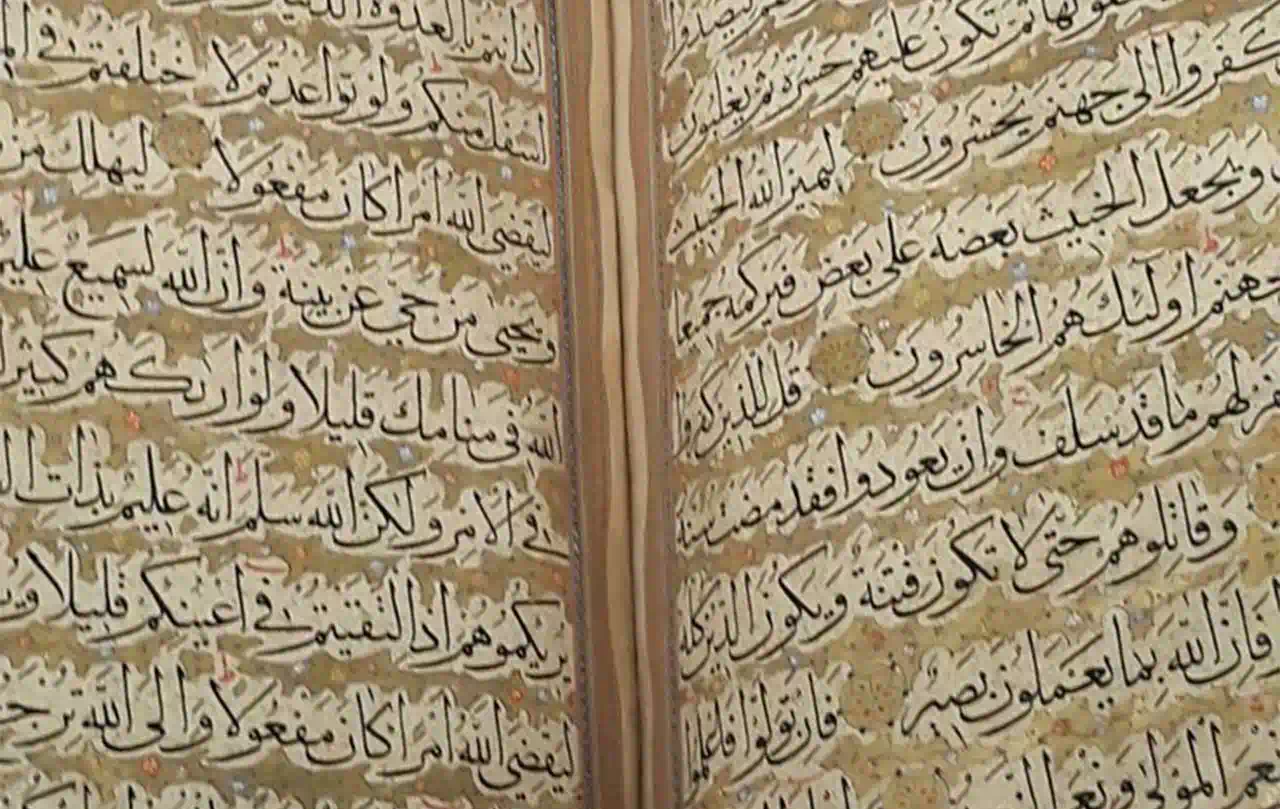 ثم تكون عليهم حسرة ثم يغلبون
كفروا الى جهنم يحشرون ليميز الله الخبيث
ويجعل الخبيث بعضه على بعض فيركمه جميعا
جهنم اولئك هم الخاسرون قل للذين كفروا
لهم ما قد سلف وان يعودوا فقد مضت سنة
وقاتلوهم حتى لا تكون فتنة ويكون الدين كله
فان الله بما يعملون بصير فان تولوا فاعلموا
المولى ونعم
اذ انتم بالعدوة الدنيا
اسفل منكم ولو تواعدتم لاختلفتم في
ليقضي الله امرا كان مفعولا ليهلك من
ويحيى من حي عن بينة وان الله لسميع عليم
الله في منامك قليلا ولو اراكهم كثيرا
في الامر ولكن الله سلم انه عليم بذات
يريكموهم اذ التقيتم في اعينكم قليلا
ليقضي الله امرا كان مفعولا والى الله ترجع